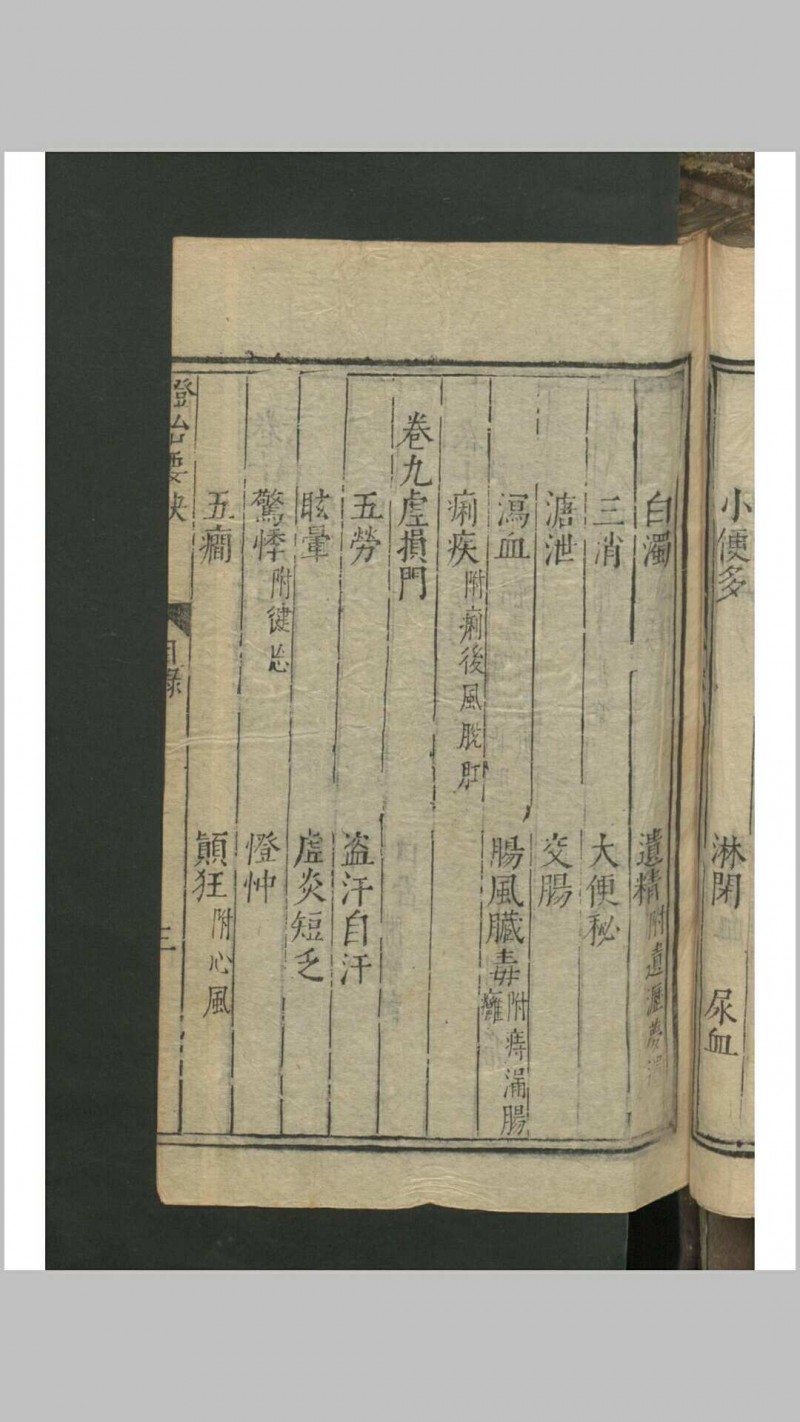 小便多 淋閉 尿血
白濁 遺精附遺瀝
三消 大便秘
溏泄 交腸
瀉血 腸風臟毒附痔漏腸癰
痢疾附痢後風脫肛
卷九虛損門
五勞 盜汗自汗
眩暈 虛炎短乏
驚悸附健忘 憕忡
五癎 顛狂附心風
證治要訣 目錄 三